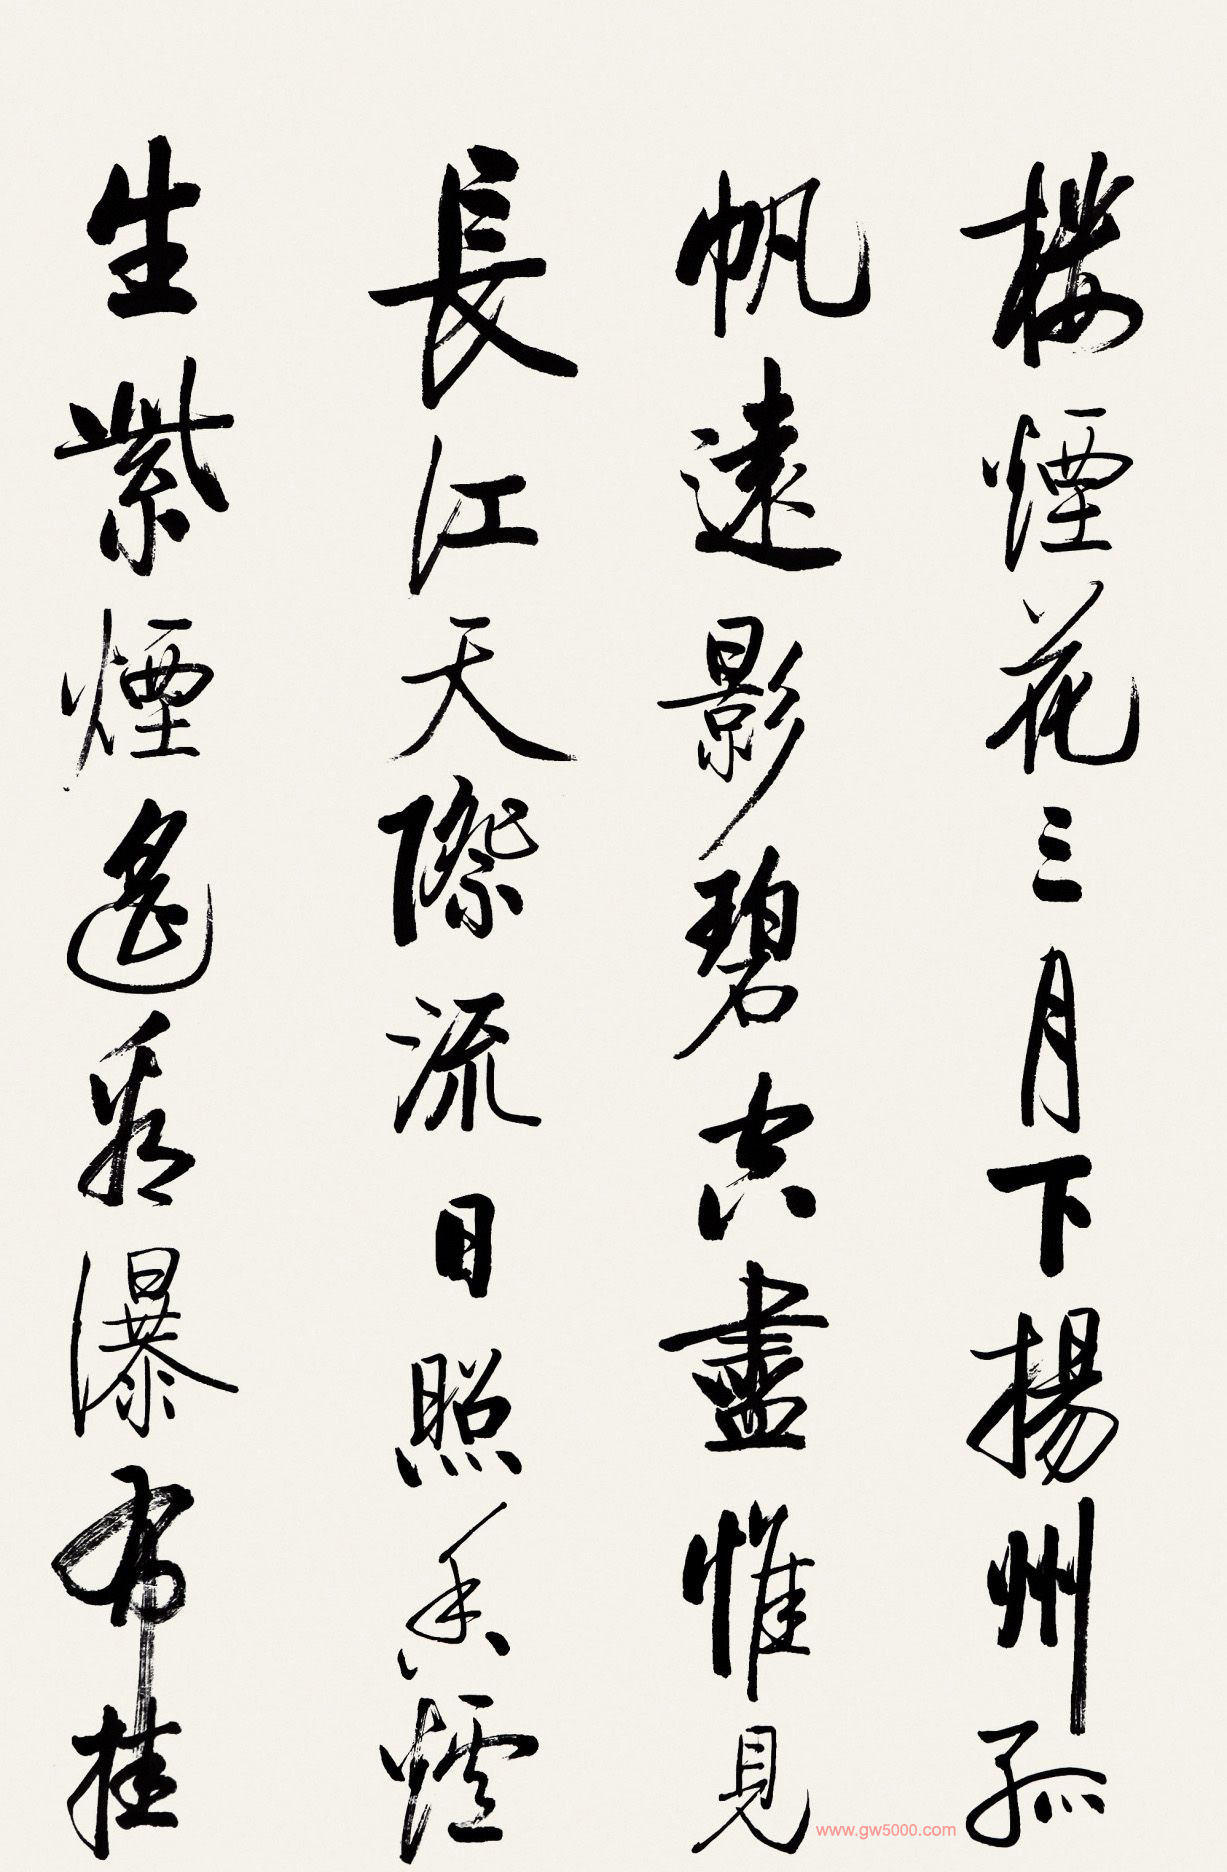 楼煙花三月下揚州孤
帆遠影碧空盡惟見
長江天際流日照香爐
生紫煙遙看瀑布挂
www.gw5000.com